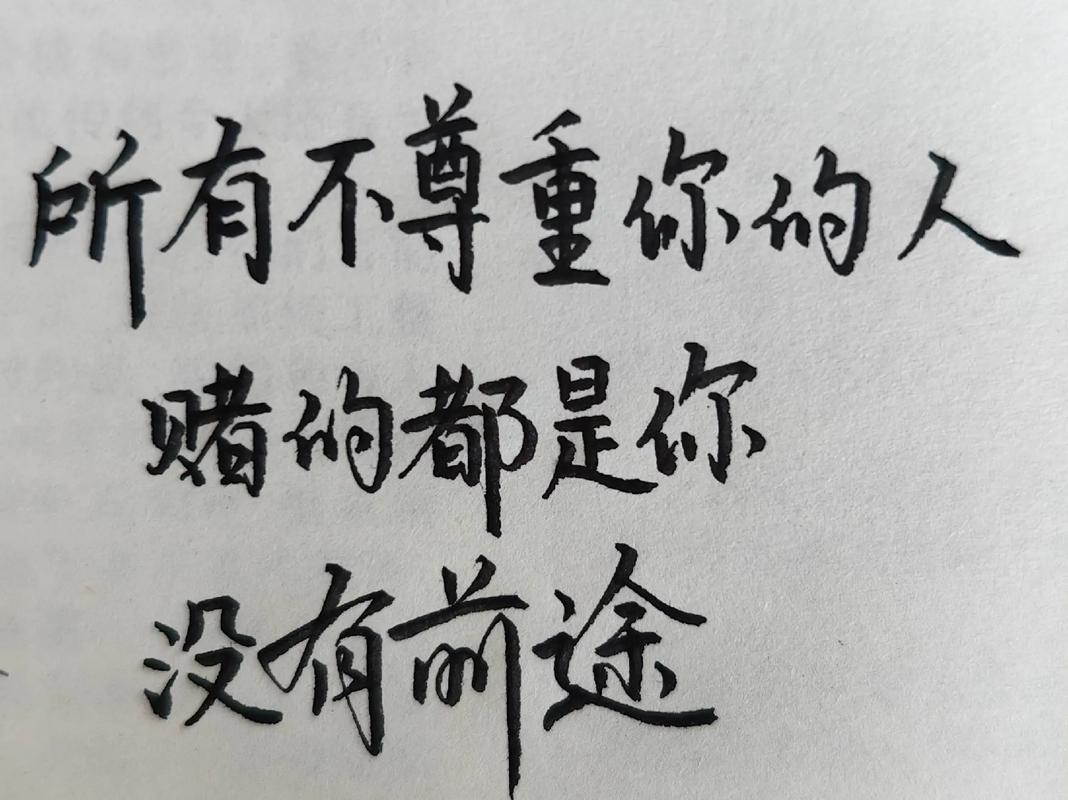 所有不尊重你的人
赌的都是你
没有前途